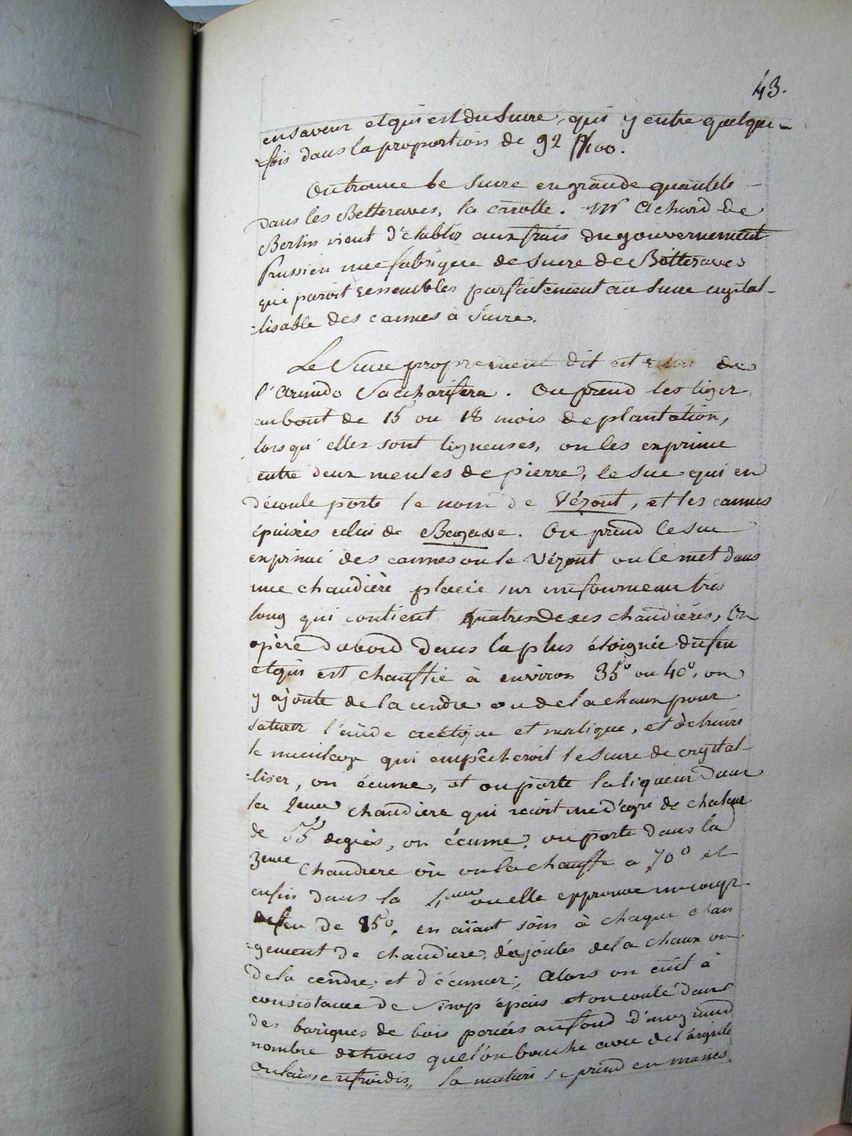 43.
en saveur et qui est du Sucre, qui y entre quelque-
-fois dans la proportion de 92 p/100.
On trouve le Sucre en grande quantité
dans les Betteraves, la carotte. Mr Achard de
Berlin vient d'établir aux frais du gouvernement
prussien une fabrique de Sucre de Betteraves
qui paroit ressembler parfaitement au Sucre crystal-
-lisable des cannes à Sucre.
Le Sucre proprement dit est de
l'Arundo Saccharifera. On prend les tiges
au bout de 15 ou 18 mois de plantation,
lorsqu'elles sont ligneuses, on les exprime
entre deux meules de pierre, le suc qui en
découle porte le nom de Vézout, et les cannes
épuisées celui de Bagasse. On prend le suc
exprimé des cannes ou le Vézout on le met dans
une chaudière placée sur un fourneau très
long qui contient quatre de ces chaudières, on
opère d'abord dans la plus éloignée du feu
et qui est chauffée à environ 35° ou 40°, on
y ajoute de la cendre ou de la chaux pour
saturer l'acide acétique et malique, et détruire
le mucilage qui empêcheroit le Sucre de crystal-
-liser, on écume, et on porte la liqueur dans
la 2eme chaudiere qui recoit un degré de chaleur
de 55 degrés, on écume, on porte dans la
3eme chaudiere où on la chauffe a 70° et
enfin dans la 4eme ou elle epprouve un degré
de feu de 85°, en aïant soin à chaque chan
-gement de chaudiere, d'ajouter de la chaux ou
de la cendre, et d'écumer; Alors on cuit à
consistance de Sirop épais et on coule dans
des bariques de bois percées au fond d'un grand
nombre de trous que l'on bouche avec de l'argile
on laisse refroidir, la matiere se prend en masse.